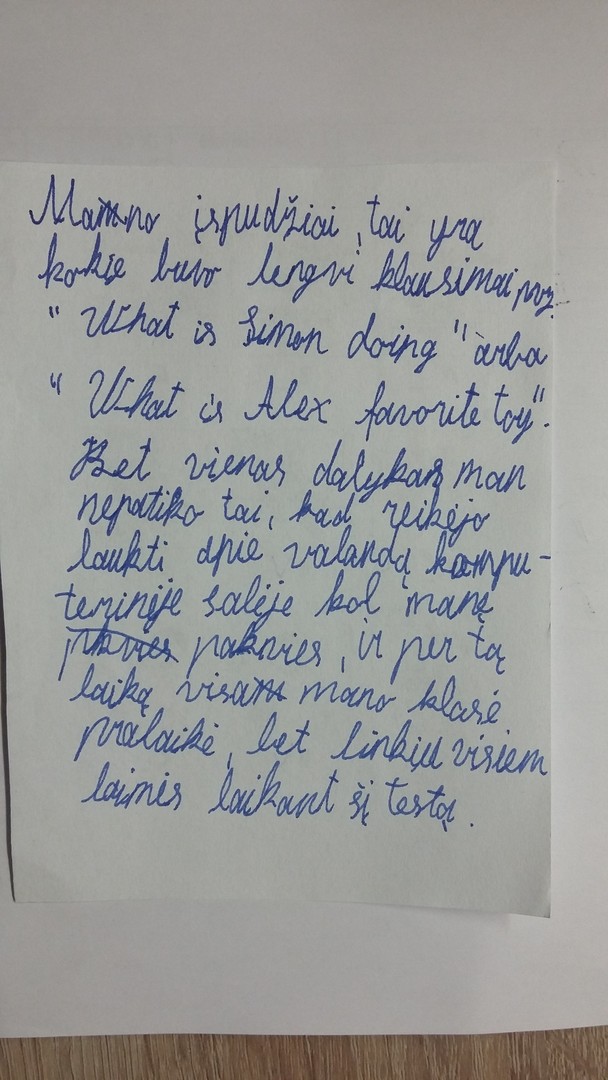 Mano įspudžiai, tai yra
kokie buvo lengvi klausimai pvz.
" What is Simon doing" arba
" What is Alex favorite toy".
Bet vienas dalykas man
nepatiko tai, kad reikėjo
laukti apie valandą kompu-
terinėje salėje kol manę
pakvies, ir per tą
laiką visa mano klasė
pralaikė, bet linkiu visiem
laimės laikant šį testą.